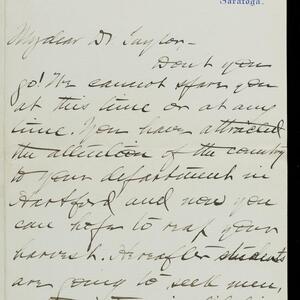 Saratoga.
My dear Dr Taylor,-
Don't you
go! We cannot spare you
at this time or at any
time. You have attracted
the attention of the country
to your department in
Hartford and now you
can hope to reap your
harvest. Hereafter students
are going to seek men,